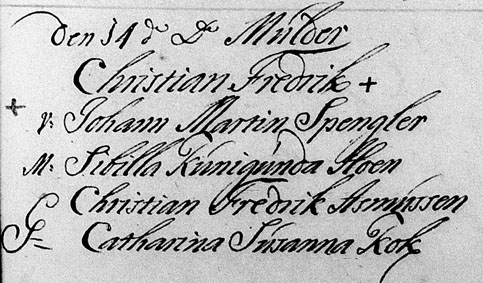 den 14 de Ds Mulder
Christian Fredrik +
+ V: Johann Martin Spengler
M: Sibilla Kunigunda Hoen
G Christian Fredrik Asmussen
G= Catharina Susanna Kok